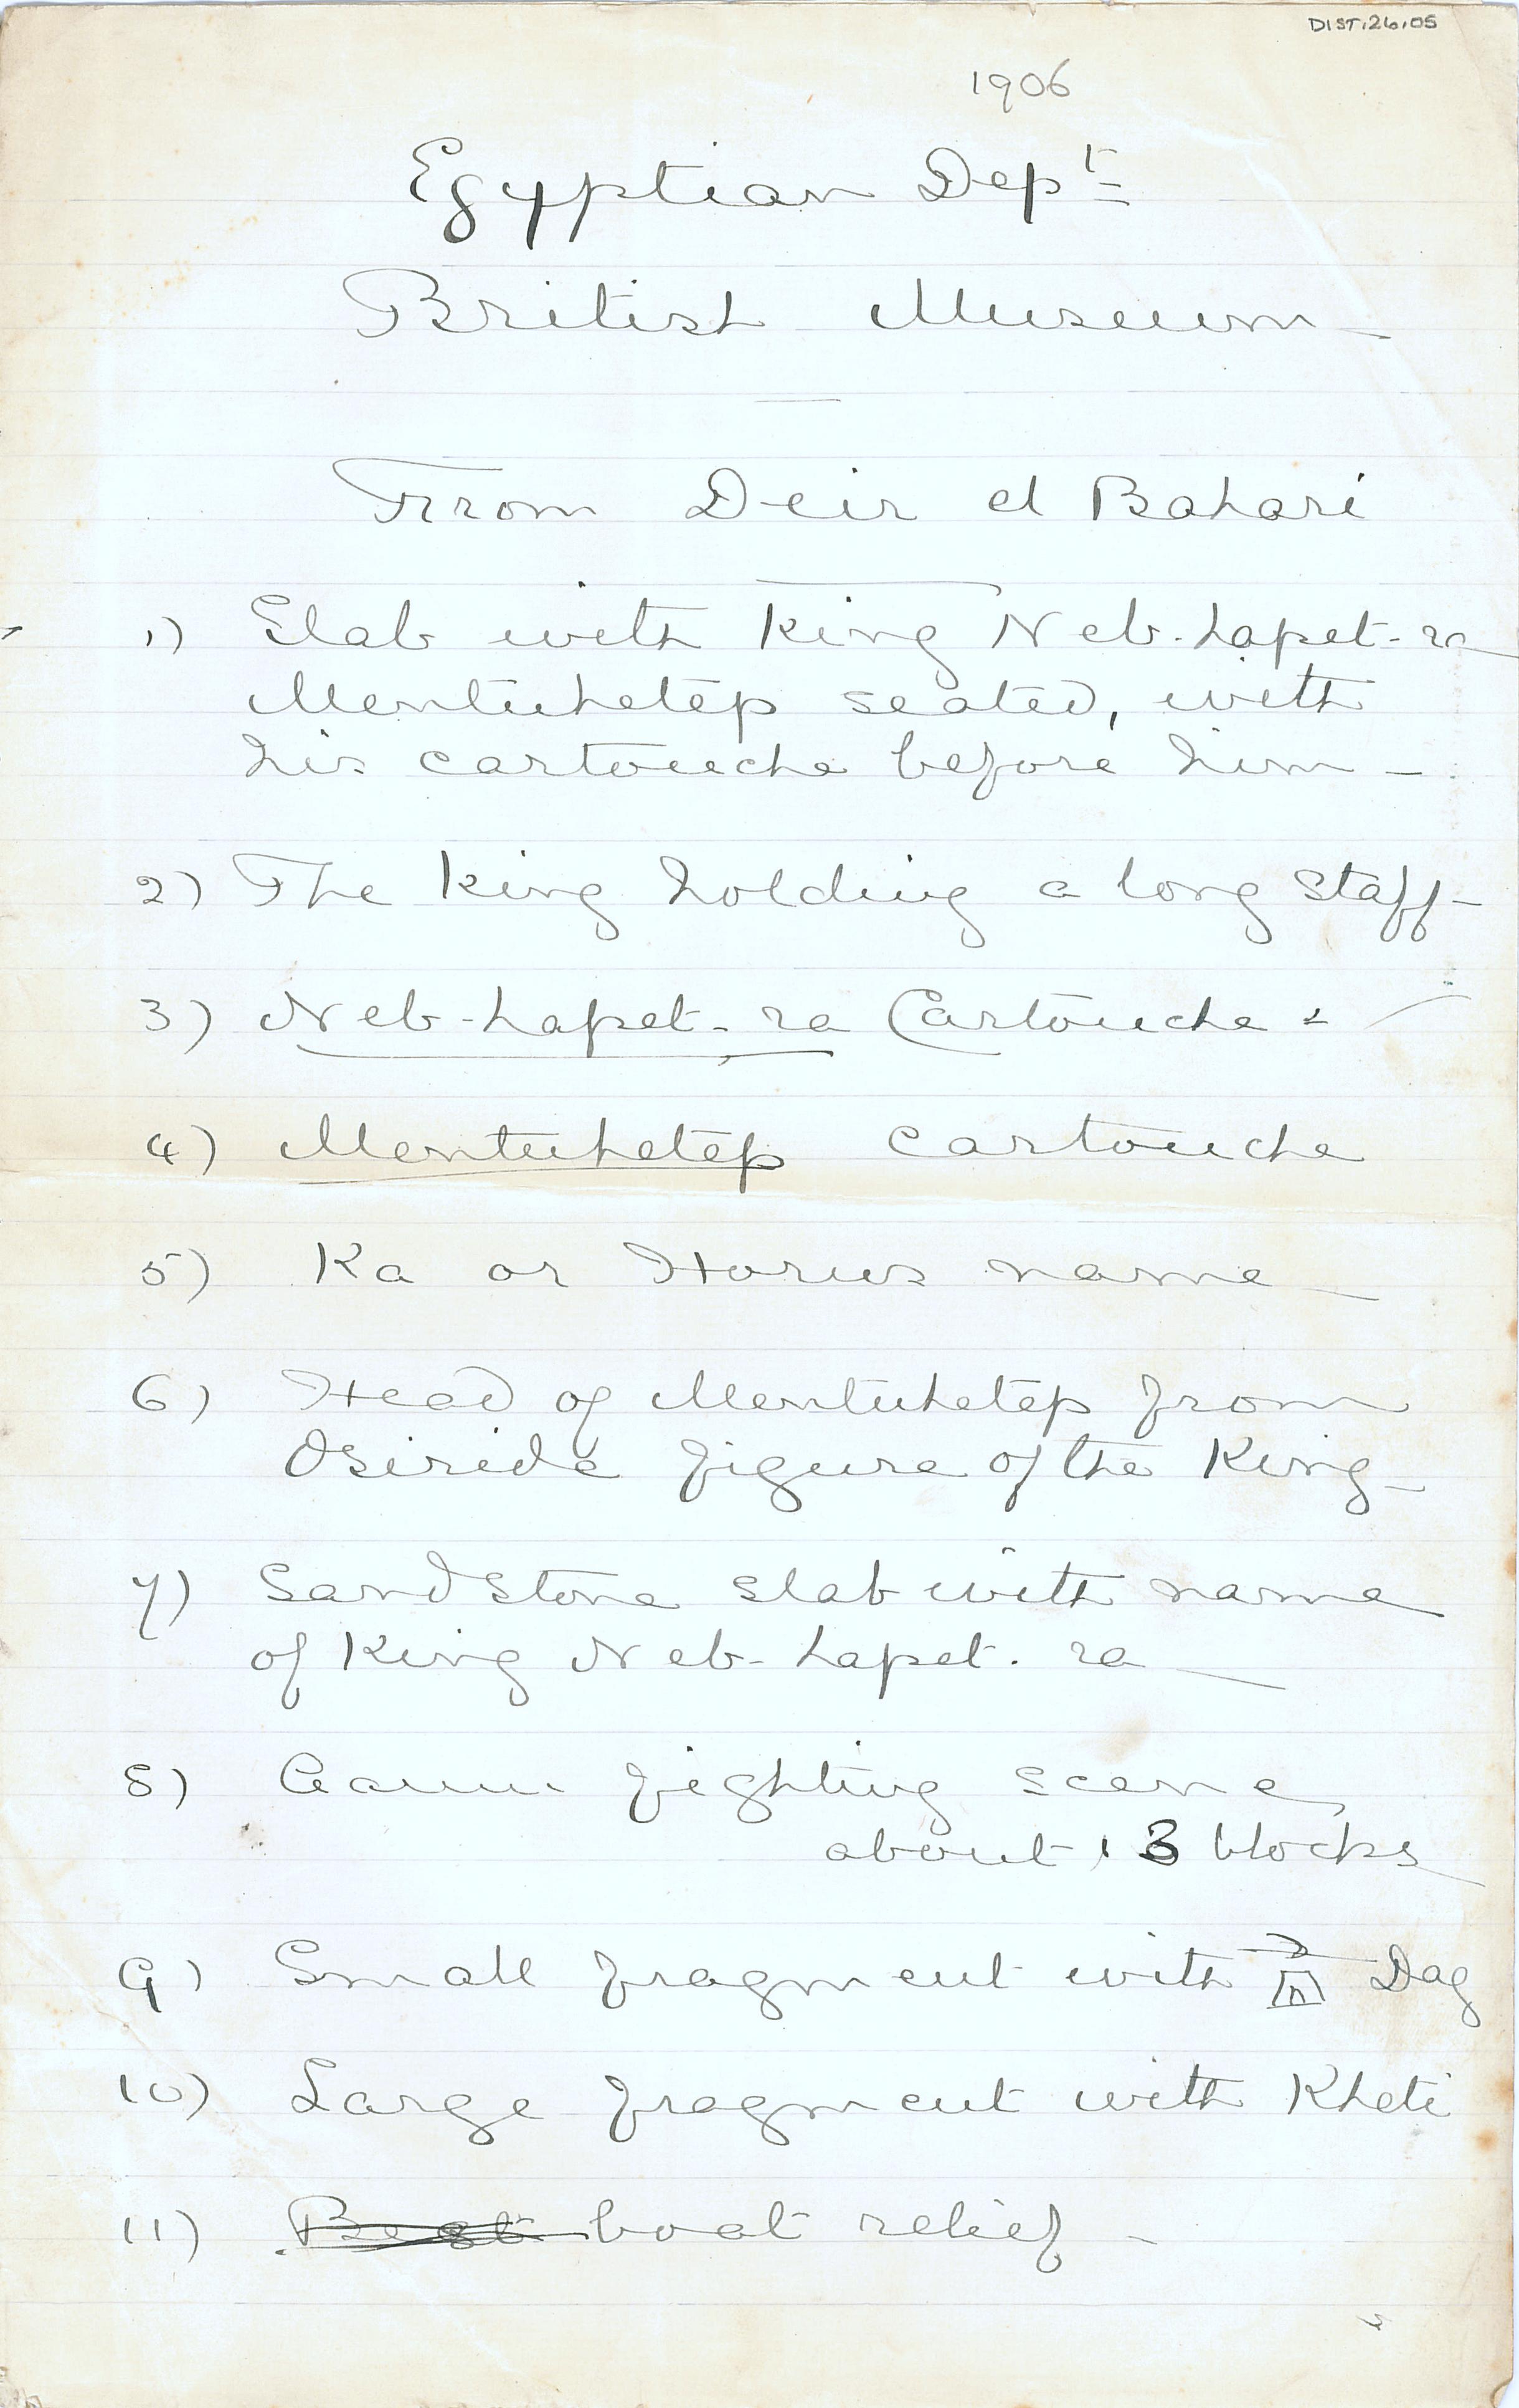 DIST.26.05
1906
Egyptian Dept
British Museum
From Deir el Bahari
1) Slab with King Neb-hapet-ra
Mentuhetep seated, with
his cartouche before him -
2) The King holding a long staff -
3) Neb-hapet-ra Cartouche
4) Mentuhetep cartouche
5) Ka or Horus name
6) Head of Mentuhetep from
Osiride figure of the King -
7) Sandstone slab with name
of King Neb-hapet-ra
8) Aamu fighting scene
about 13 blocks
9) Small fragment with Dag
10) Large fragment with Kheti
11) Best boat relief -